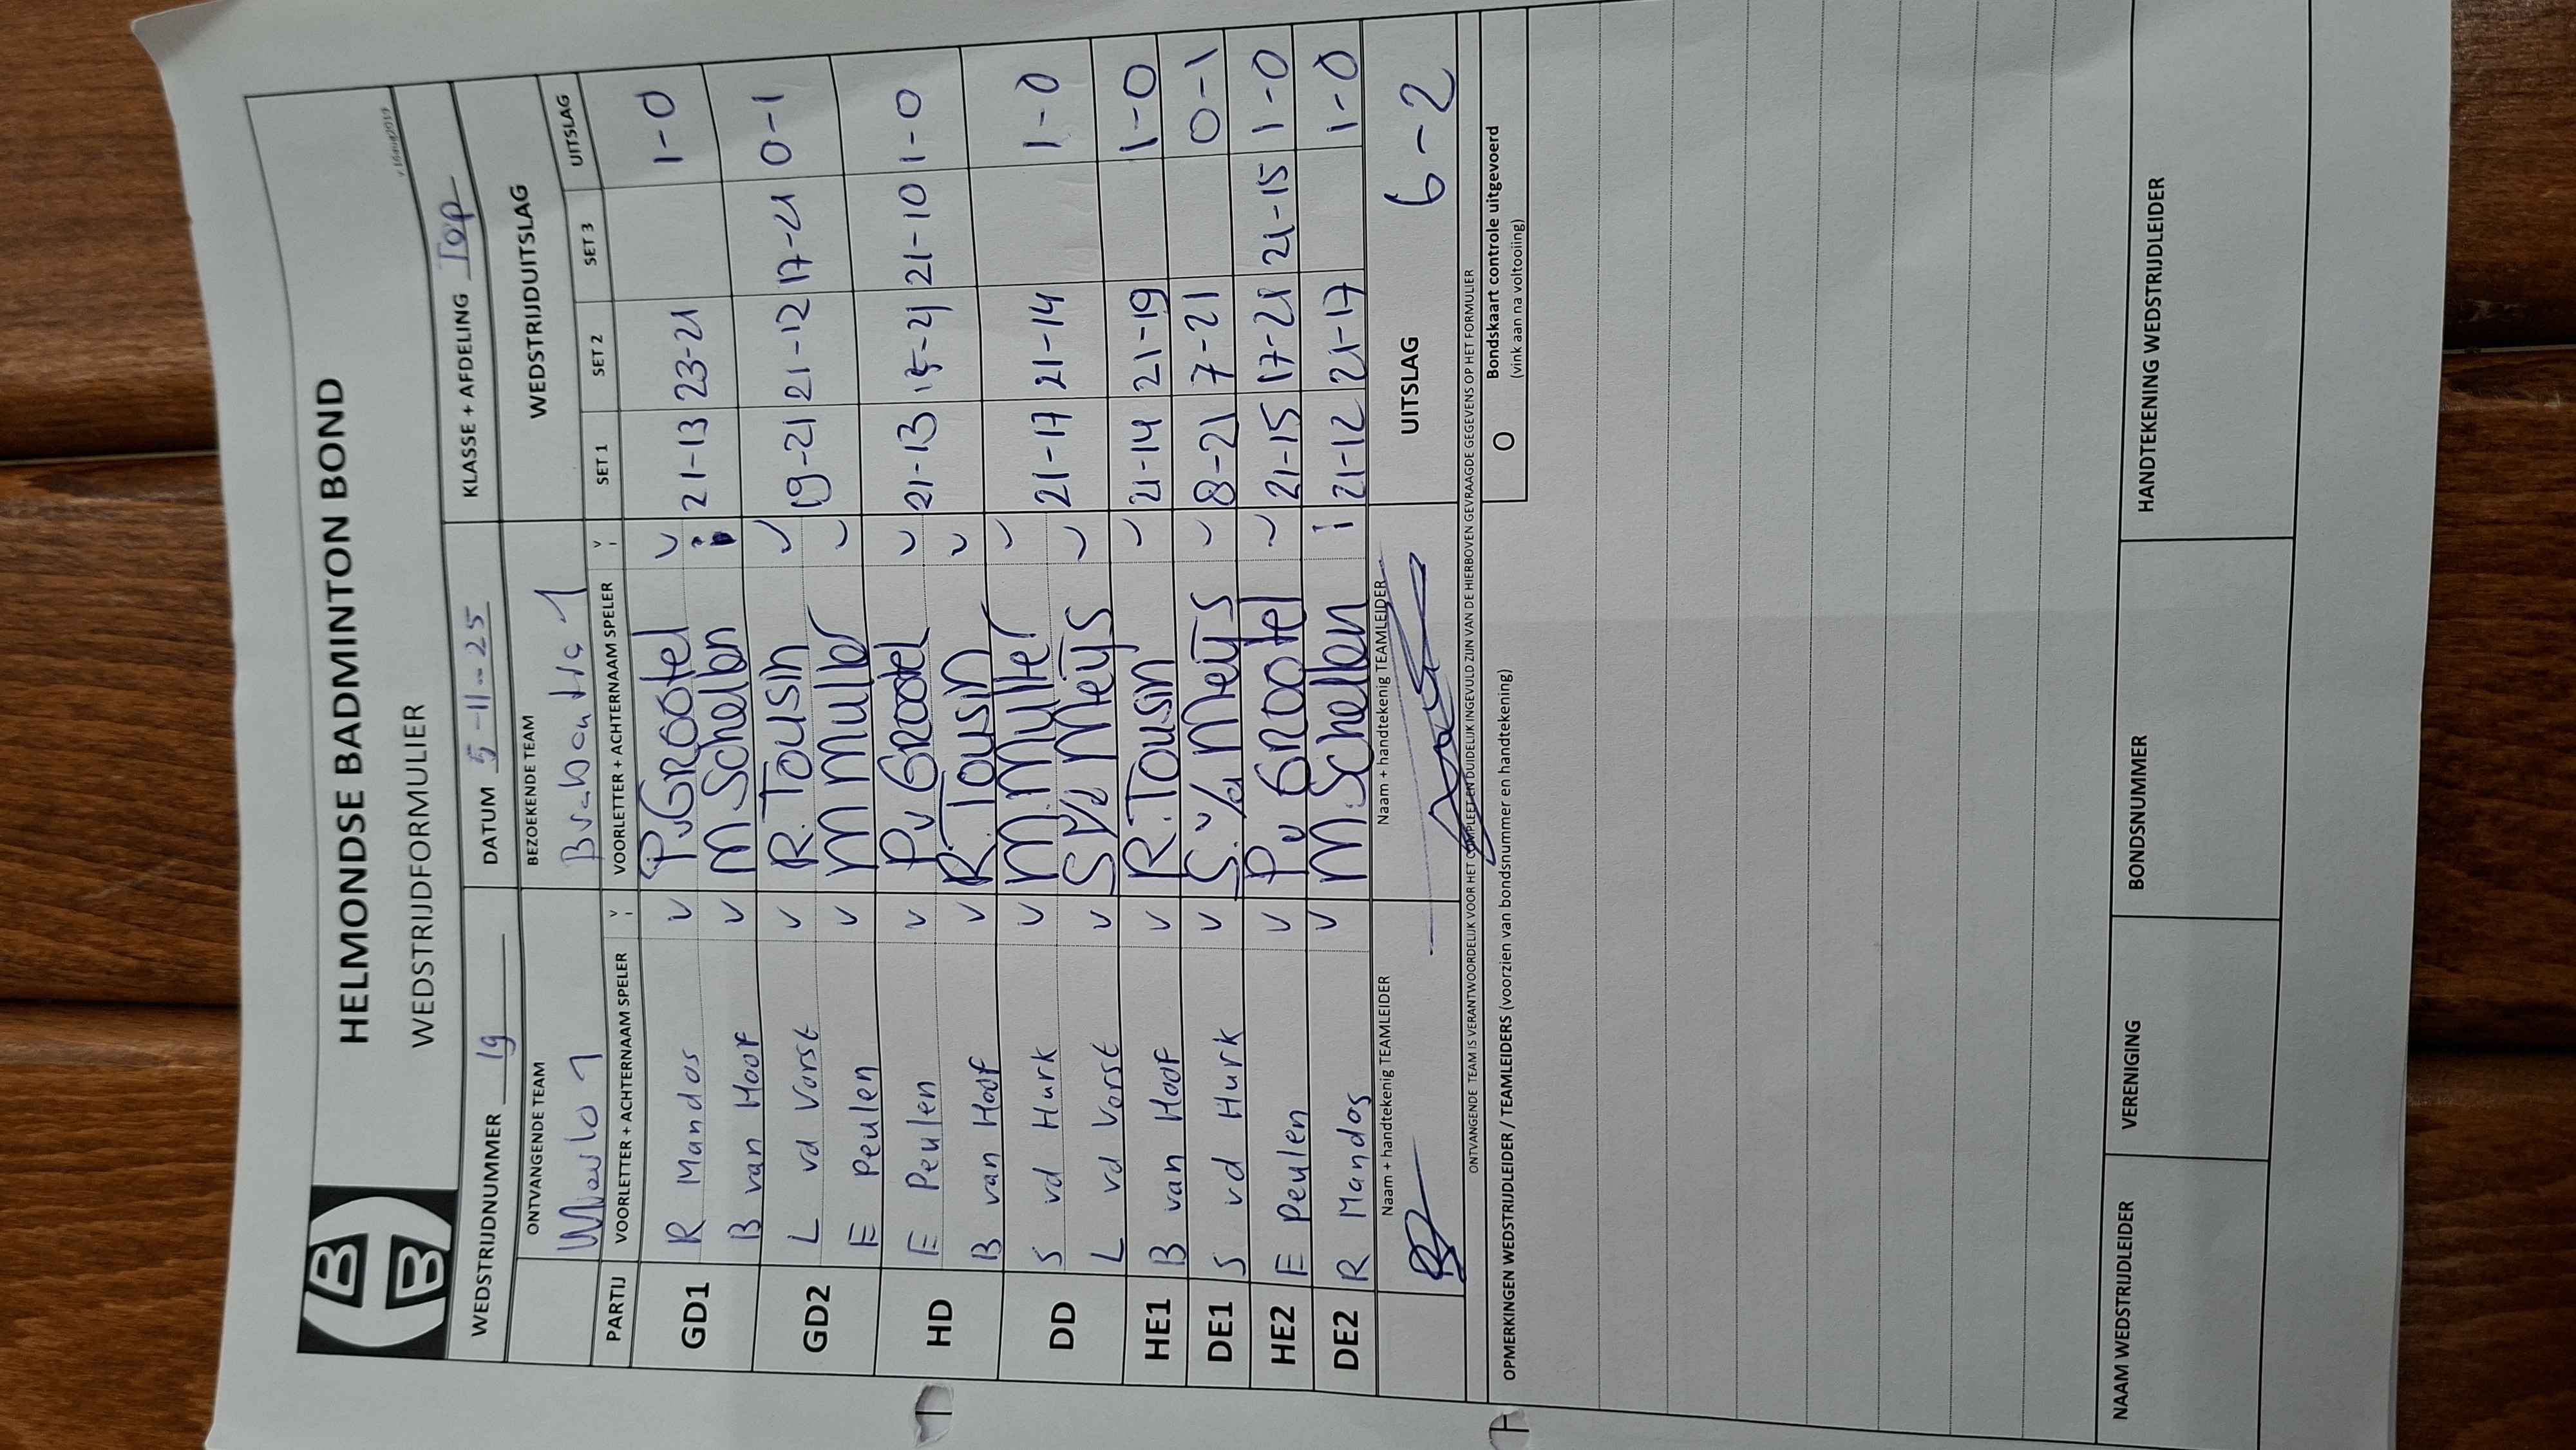 HELMONDSE BADMINTON BOND
WEDSTRIJDFORMULIER
WEDSTRIJDNUMMER 19 DATUM 5-11-25 KLASSE + AFDELING Top
ONTVANGENDE TEAM BEZOEKENDE TEAM WEDSTRIJDUITSLAG
Mierlo 1 Brabantia 1
PARTIJ VOORLETTER + ACHTERNAAM SPELER V i VOORLETTER + ACHTERNAAM SPELER V i SET 1 SET 2 SET 3 UITSLAG
GD1 R Mandos v P.v Grootel v 21-13 23-21 1-0
B van Hoof v M. Schellen
GD2 L vd Vorst v R. Tousin v 19-21 21-12 17-21 0-1
E Peulen v M Muller v
HD E Peulen v P v Grootel v 21-13 15-21 21-10 1-0
B van Hoof v R. Tousin v
DD S vd Hurk v M. Muller v 21-17 21-14 1-0
L vd Vorst v S v/d Meijs v
HE1 B van Hoof v R. Tousin v 21-14 21-19 1-0
DE1 S vd Hurk v S. v/d Meijs v 8-21 7-21 0-1
HE2 E Peulen v P v Grootel v 21-15 17-21 21-15 1-0
DE2 R Mandos v M. Schellen i 21-12 21-17 1-0
Naam + handtekenig TEAMLEIDER Naam + handtekenig TEAMLEIDER UITSLAG 6-2
ONTVANGENDE TEAM IS VERANTWOORDELIJK VOOR HET COMPLEET EN DUIDELIJK INGEVULD ZIJN VAN DE HIERBOVEN GEVRAAGDE GEGEVENS OP HET FORMULIER
OPMERKINGEN WEDSTRIJDLEIDER / TEAMLEIDERS (voorzien van bondsnummer en handtekening) O Bondskaart controle uitgevoerd
(vink aan na voltooiing)
NAAM WEDSTRIJDLEIDER VERENIGING BONDSNUMMER HANDTEKENING WEDSTRIJDLEIDER